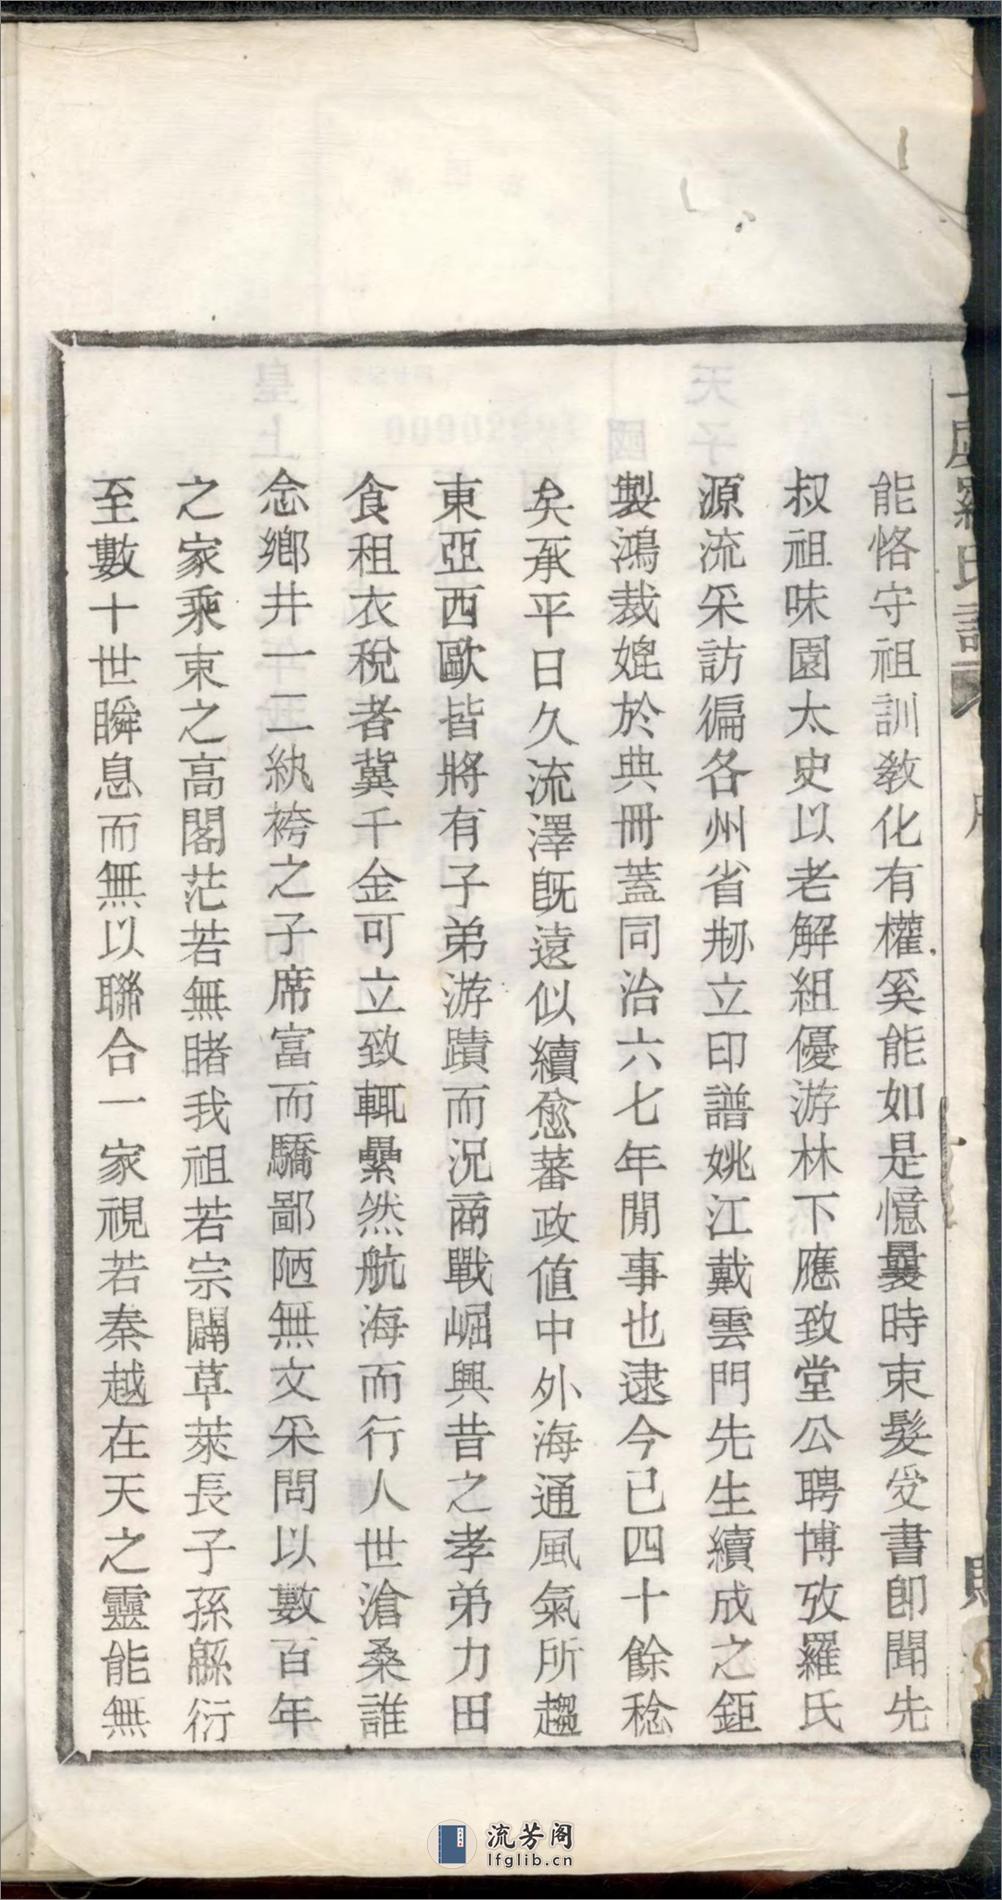 能恪守祖訓敎化有權奚能如是憶曩時束髮受書卽聞先
叔祖味園太史以老解組優游林下應致堂公聘博攷羅氏
源流采訪徧各州省刱立印譜姚江戴雲門先生續成之鉅
製鴻裁媲於典冊蓋同治六七年閒事也逮今已四十餘稔
矣承平日久流澤旣遠似續愈蕃政值中外海通風氣所趨
東亞西歐皆將有子弟游蹟而況商戰崛興昔之孝弟力田
食租衣稅者冀千金可立致輒纍然航海而行人世滄桑誰
念鄉井一二紈袴之子席富而驕鄙陋無文采問以數百年
之家乘束之高閣茫若無睹我祖若宗闢草萊長子孫緜衍
至數十世瞬息而無以聯合一家視若秦越在天之靈能無
羅氏譜
流芳阁
lfglib.cn